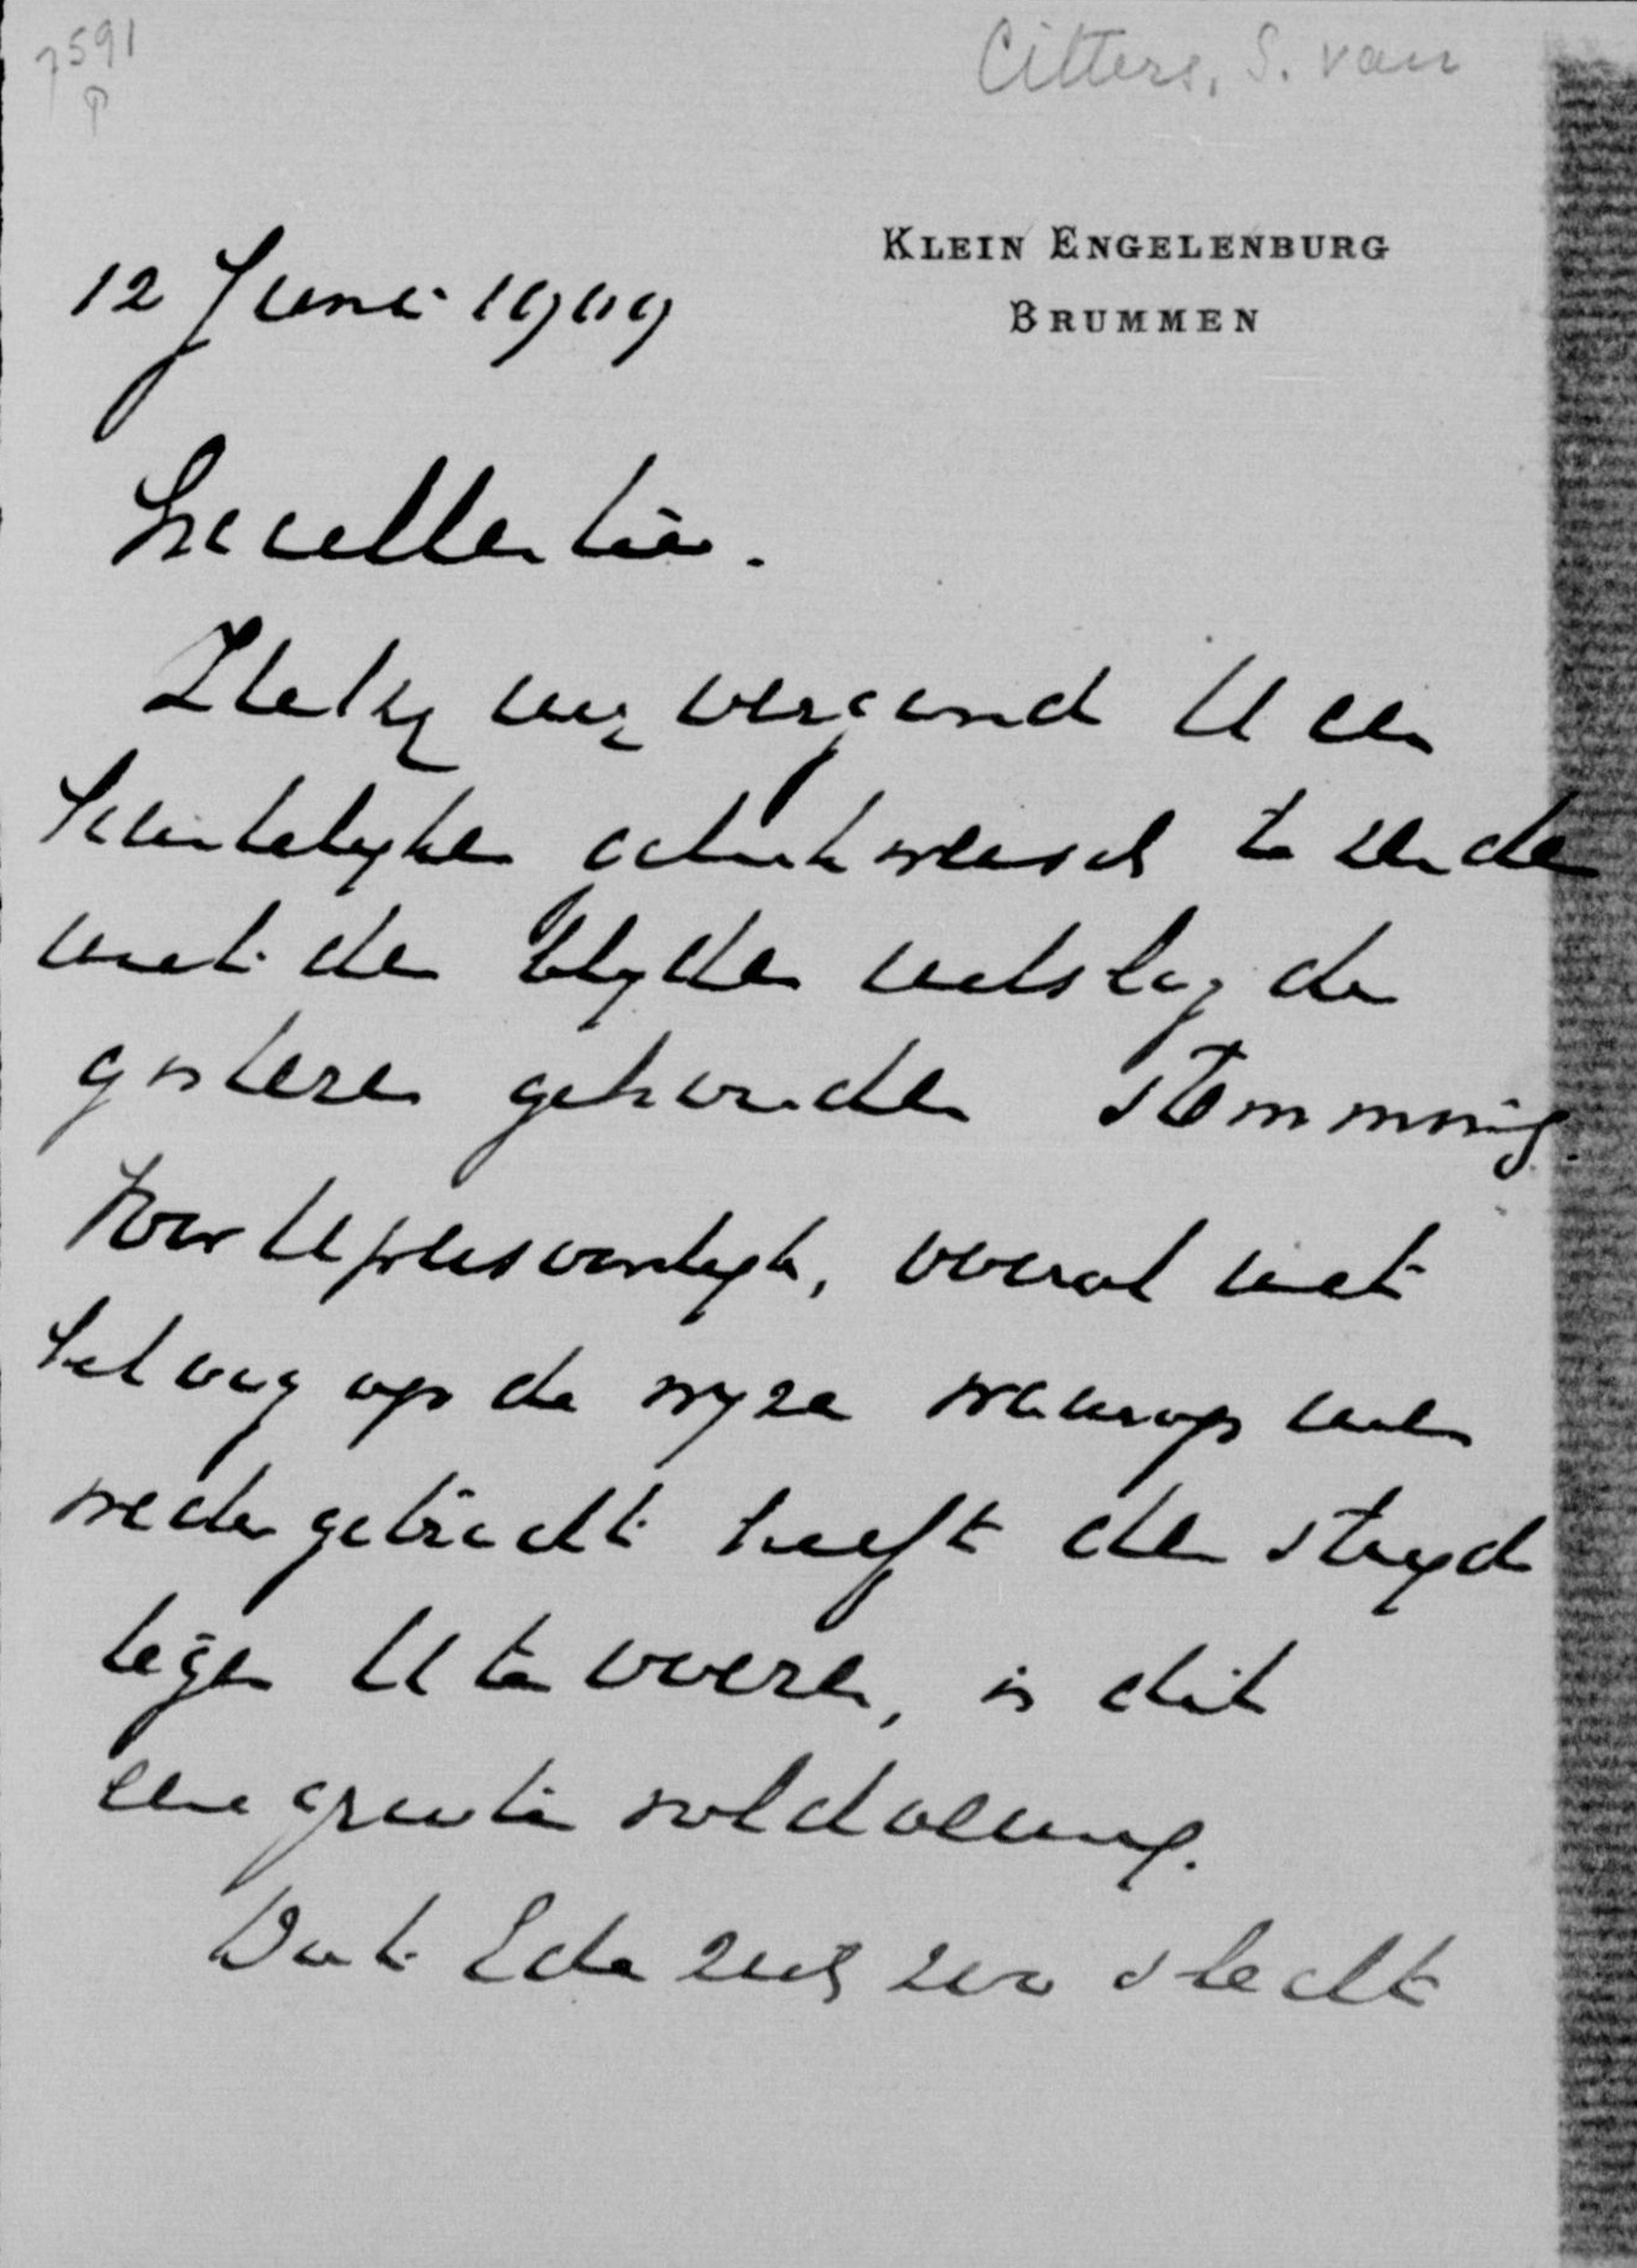 7591
P
Citters, S. van
KLEIN ENGELENBURG
BRUMMEN
12 Juni 1909
Excellentie.
Het zij my vergund U een
hartelyken gelukwensch te zenden
met den blyden uitslag der
gisteren gehouden stemming.
Voor U persoonlyk, vooral met
het oog op de wyze waarop men
gebracht heeft den stryd
tegen U te voeren, is dit
een groote voldoening.
Dat Ede zich zoo slecht